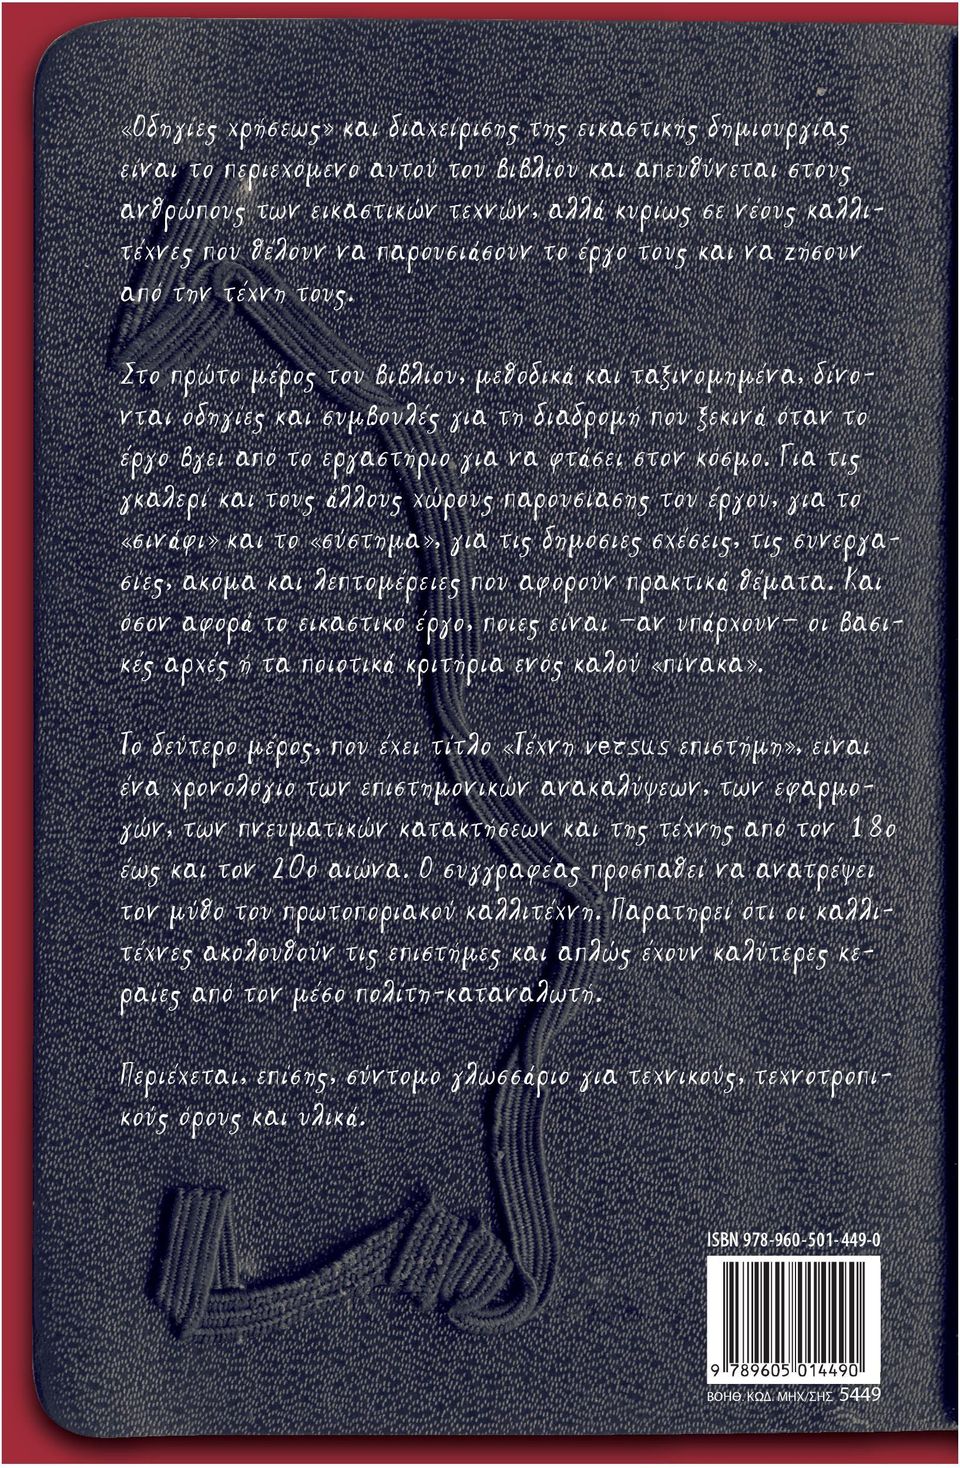 «Οδηγίες χρήσεως» και διαχείρισης της εικαστικής δημιουργίας
είναι το περιεχόμενο αυτού του βιβλίου και απευθύνεται στους
ανθρώπους των εικαστικών τεχνών, αλλά κυρίως σε νέους καλλι-
τέχνες που θέλουν να παρουσιάσουν το έργο τους και να ζήσουν
από την τέχνη τους.
Στο πρώτο μέρος του βιβλίου, μεθοδικά και ταξινομημένα, δίνο-
νται οδηγίες και συμβουλές για τη διαδρομή που ξεκινά όταν το
έργο βγει από το εργαστήριο για να φτάσει στον κόσμο. Για τις
γκαλερί και τους άλλους χώρους παρουσίασης του έργου, για το
«σινάφι» και το «σύστημα», για τις δημόσιες σχέσεις, τις συνεργα-
σίες, ακόμα και λεπτομέρειες που αφορούν πρακτικά θέματα. Και
όσον αφορά το εικαστικό έργο, ποιες είναι –αν υπάρχουν– οι βασι-
κές αρχές ή τα ποιοτικά κριτήρια ενός καλού «πίνακα».
Το δεύτερο μέρος, που έχει τίτλο «Τέχνη versus επιστήμη», είναι
ένα χρονολόγιο των επιστημονικών ανακαλύψεων, των εφαρμο-
γών, των πνευματικών κατακτήσεων και της τέχνης από τον 18ο
έως και τον 20ό αιώνα. Ο συγγραφέας προσπαθεί να ανατρέψει
τον μύθο του πρωτοποριακού καλλιτέχνη. Παρατηρεί ότι οι καλλι-
τέχνες ακολουθούν τις επιστήμες και απλώς έχουν καλύτερες κε-
ραίες από τον μέσο πολίτη-καταναλωτή.
Περιέχεται, επίσης, σύντομο γλωσσάριο για τεχνικούς, τεχνοτροπι-
κούς όρους και υλικά.
ISBN 978-960-501-449-0
9 789605 014490
ΒΟΗΘ. ΚΩΔ. ΜΗΧ/ΣΗΣ 5449